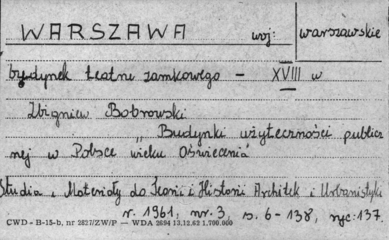 WARSZAWA woj: warszawskie
budynek teatru zamkowego – XVIII w
Zbigniew Bobrowski
„Budynki użyteczności publicz
nej w Polsce wieku Oświecenia"
Studia i Materiały do Teorii i Historii Architek i Urbanistyki
r. 1961, nr. 3, s. 6-138, ryc: 137.
CWD - B-15-b, nr 2627/ZW/P — WDA 2694 13.12.62 1.700.000